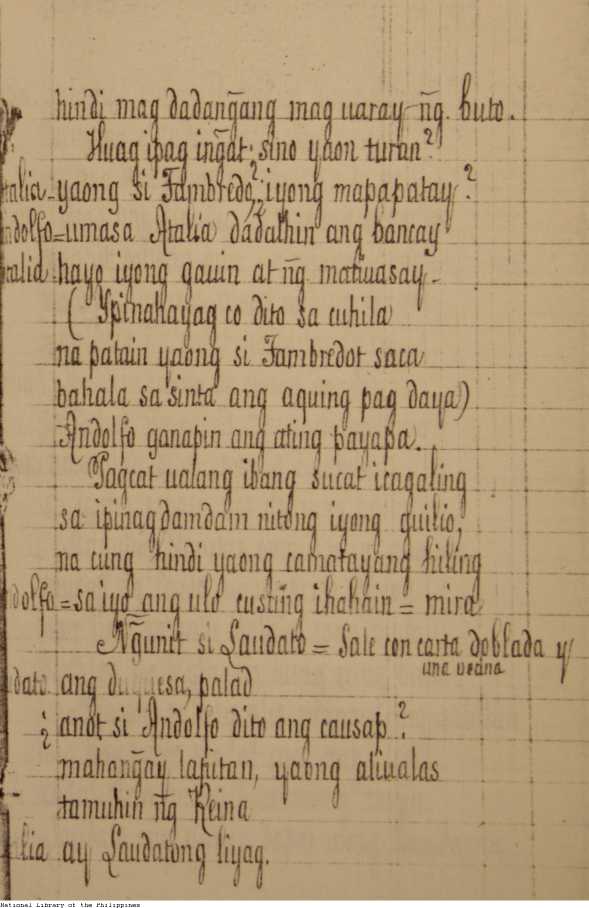 hindi mag dadang̃ang mag uaray ng̃. buto.
Huag ipag ing̃at; sino yaon turan?
talia-yaong si Fambredo, ¿iyong mapapatay?
ndolfo=umasa Atalia dadalhin ang bancay
talia-hayo iyong gauin at ng̃ matiuasay-
( Ypinahayag co dito sa cuhila
na patain yaong si Fambredot saca
bahala sa sinta ang aquing pag daya)
Andolfo ganapin ang ating payapa.
Pagcat ualang ibang sucat icagaling
sa ipinagdamdam nitong iyong guilio,
na cung hindi yaong camatayang hiling
dolfo=sa iyo ang ulo custing ihahain = mira
Ng̃unit si Laudato = Sale con carta doblada y
una vedna
dato ang duquesa, palad
¿anot si Andolfo dito ang causap?
mahang̃ay lapitan, yaong aliualas
tamuhin ng̃ Reina
lia ay Laudatong liyag.
National Library of the Philippines